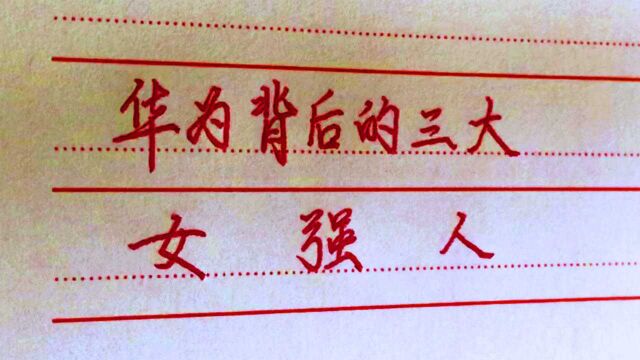 华为背后的三大
女强人